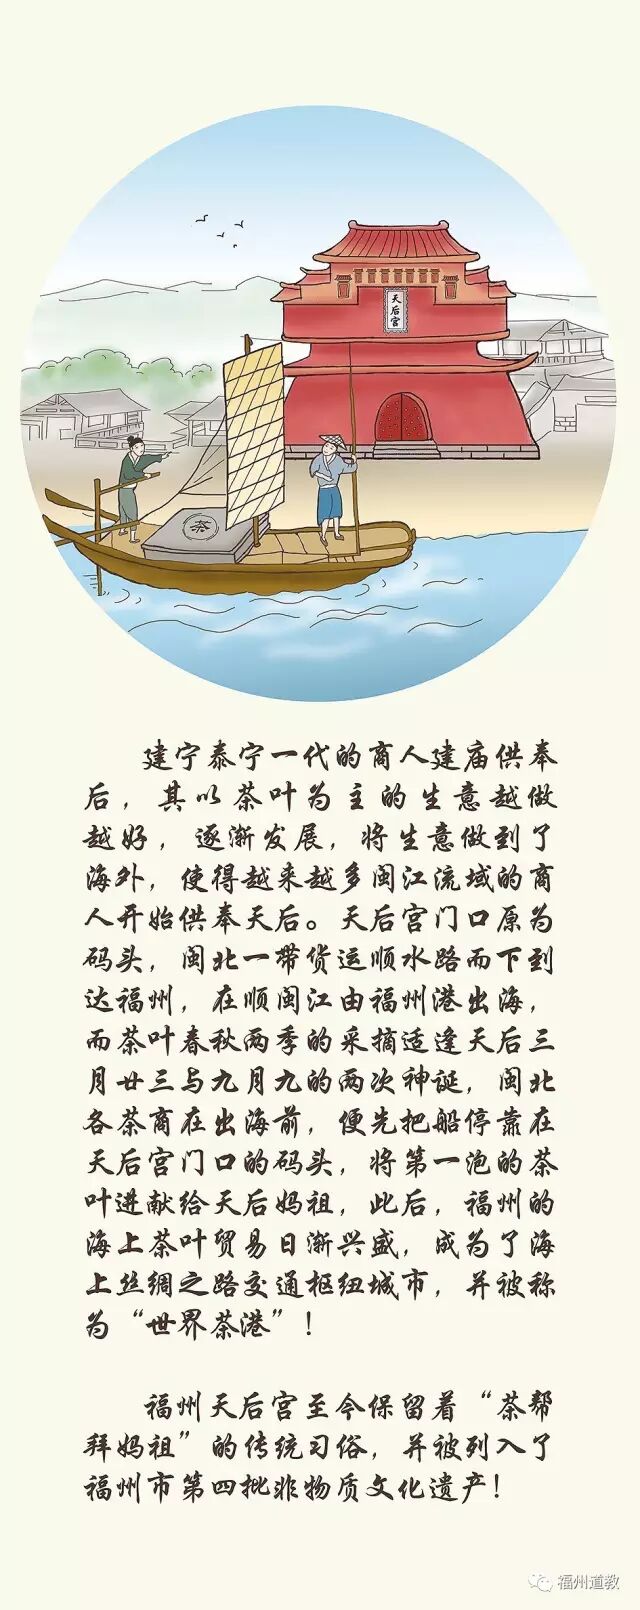 天后宫
茶
建宁泰宁一代的商人建庙供奉
后，其以茶叶为主的生意越做
越好，逐渐发展，将生意做到了
海外，使得越来越多闽江流域的商
人开始供奉天后。天后宫门口原为
码头，闽北一带货运顺水路而下到
达福州，在顺闽江由福州港出海，
而茶叶春秋两季的采摘适逢天后三
月廿三与九月九的两次神诞，闽北
各茶商在出海前，便先把船停靠在
天后宫门口的码头，将第一泡的茶
叶进献给天后妈祖，此后，福州的
海上茶叶贸易日渐兴盛，成为了海
上丝绸之路交通枢纽城市，并被称
为“世界茶港”！
福州天后宫至今保留着“茶帮
拜妈祖”的传统习俗，并被列入了
福州市第四批非物质文化遗产！
福州道教